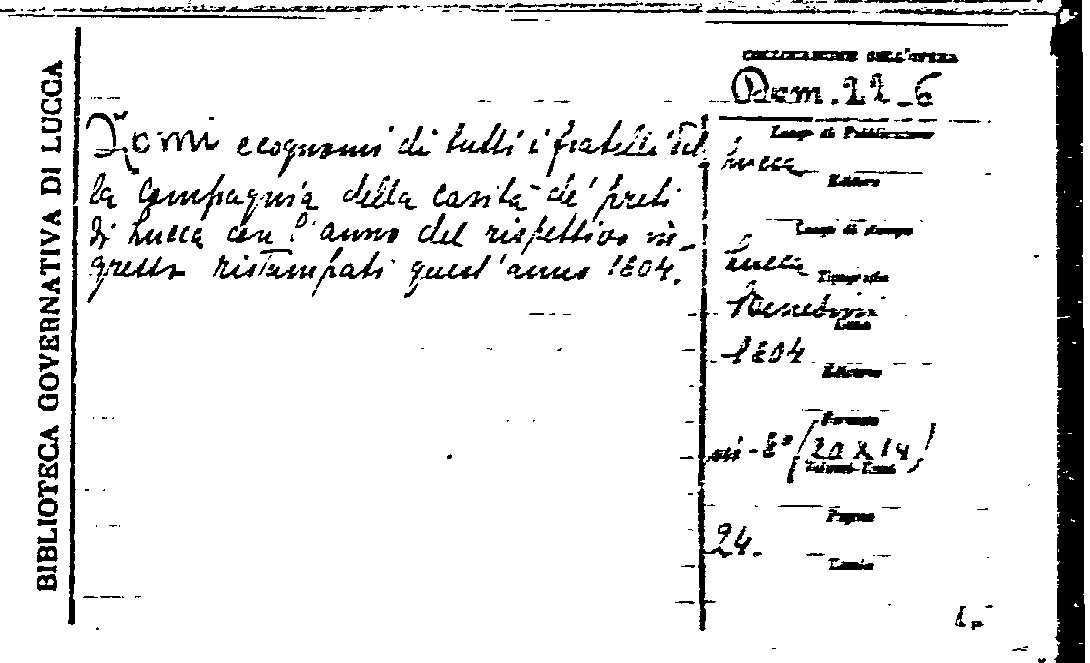 BIBLIOTECA GOVERNATIVA DI LUCCA
Nomi e cognomi di tutti i fratelli del
la Compagnia della carità de' preti
di Lucca con l'anno del rispettivo in-
gresso ristampati quest'anno 1804.
COLLOCAZIONE DELL'OPERA
Dom. 22-6
Luogo di Pubblicazione
Lucca
Editore
Luogo di stampa
Lucca
Tipografia
Benedini
Data
1804
Edizione
Formato
in-8° (20 x 14)
Pagine
24.